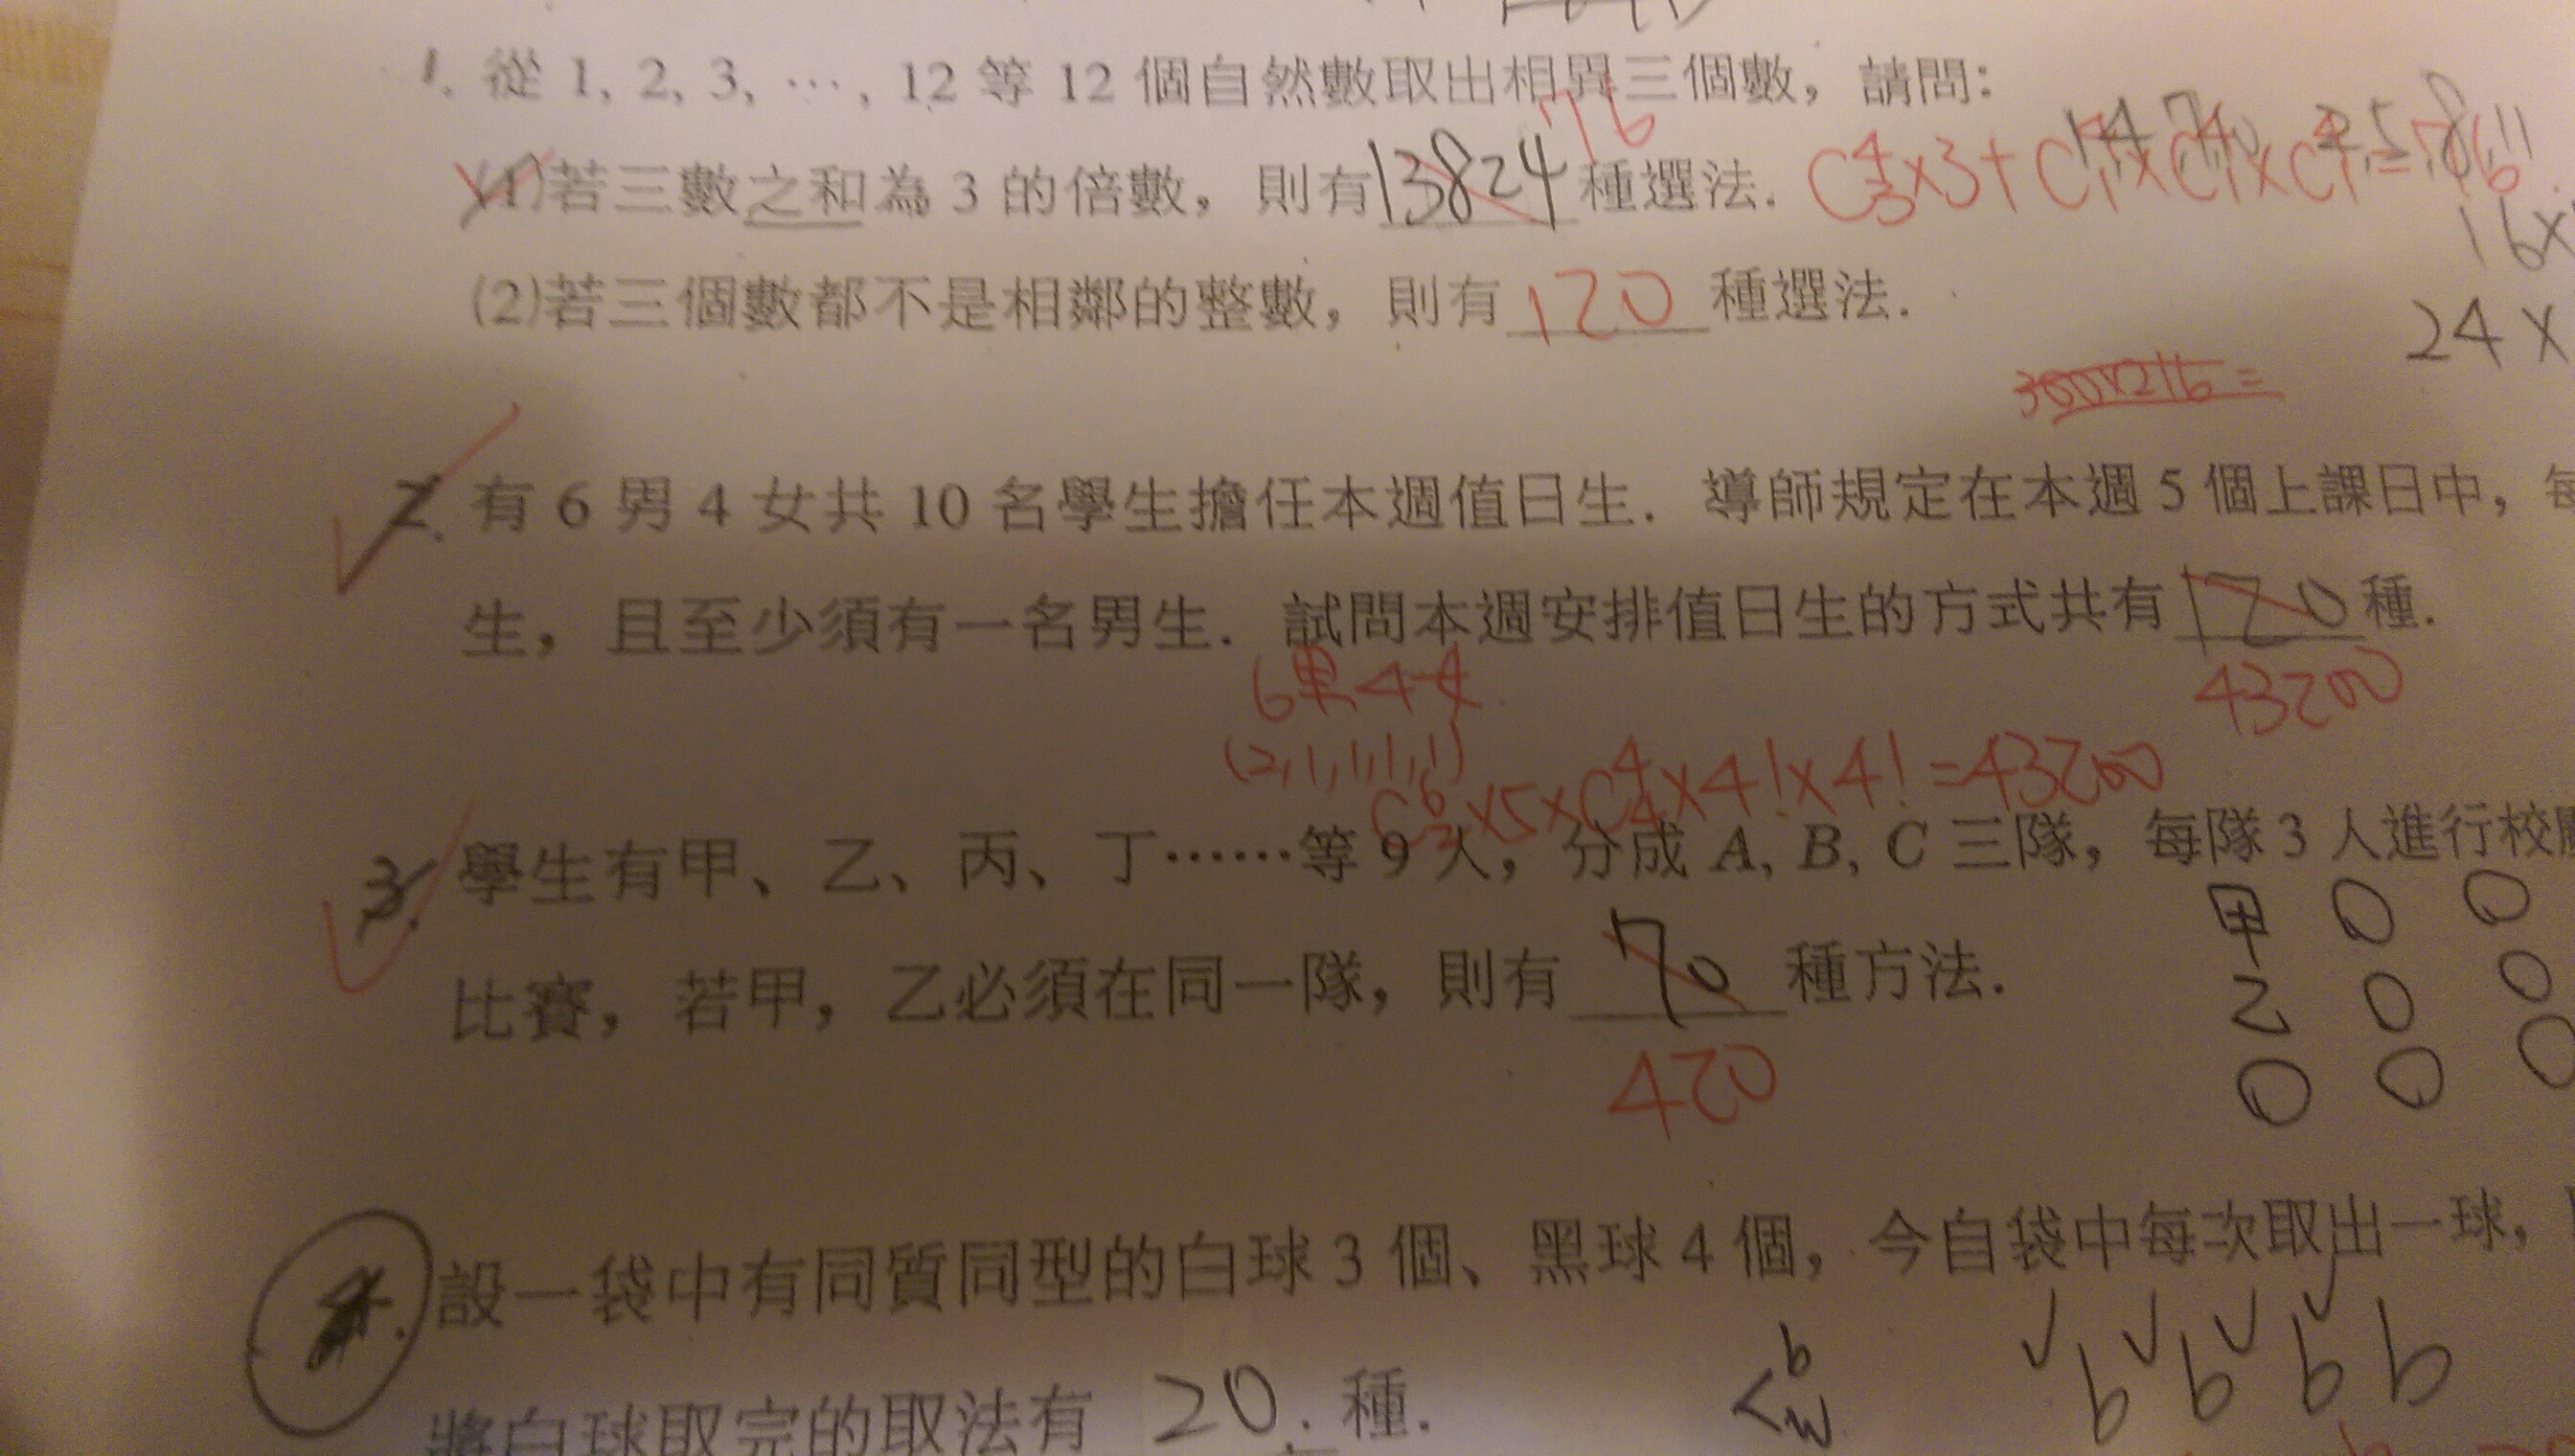 1. 從 1, 2, 3, …, 12 等 12 個自然數取出相異三個數，請問：
76
(1)若三數之和為 3 的倍數，則有 13824 種選法. C⁴₃×3+C⁴₁×C⁴₁×C⁴₁=76
16×
(2)若三個數都不是相鄰的整數，則有 120 種選法.
24×
300×216=
2. 有 6 男 4 女共 10 名學生擔任本週值日生. 導師規定在本週 5 個上課日中，每
生，且至少須有一名男生. 試問本週安排值日生的方式共有 120 種.
6男4女
43200
(2,1,1,1,1)
C⁶₂×5×C⁴₄×4!×4!=43200
3. 學生有甲、乙、丙、丁……等 9 人，分成 A, B, C 三隊，每隊 3 人進行校
甲 O O
比賽，若甲，乙必須在同一隊，則有 70 種方法.
乙 O O
420
O O O
4. 設一袋中有同質同型的白球 3 個、黑球 4 個，今自袋中每次取出一球，
b
w
b b b b
將白球取完的取法有 20 種.